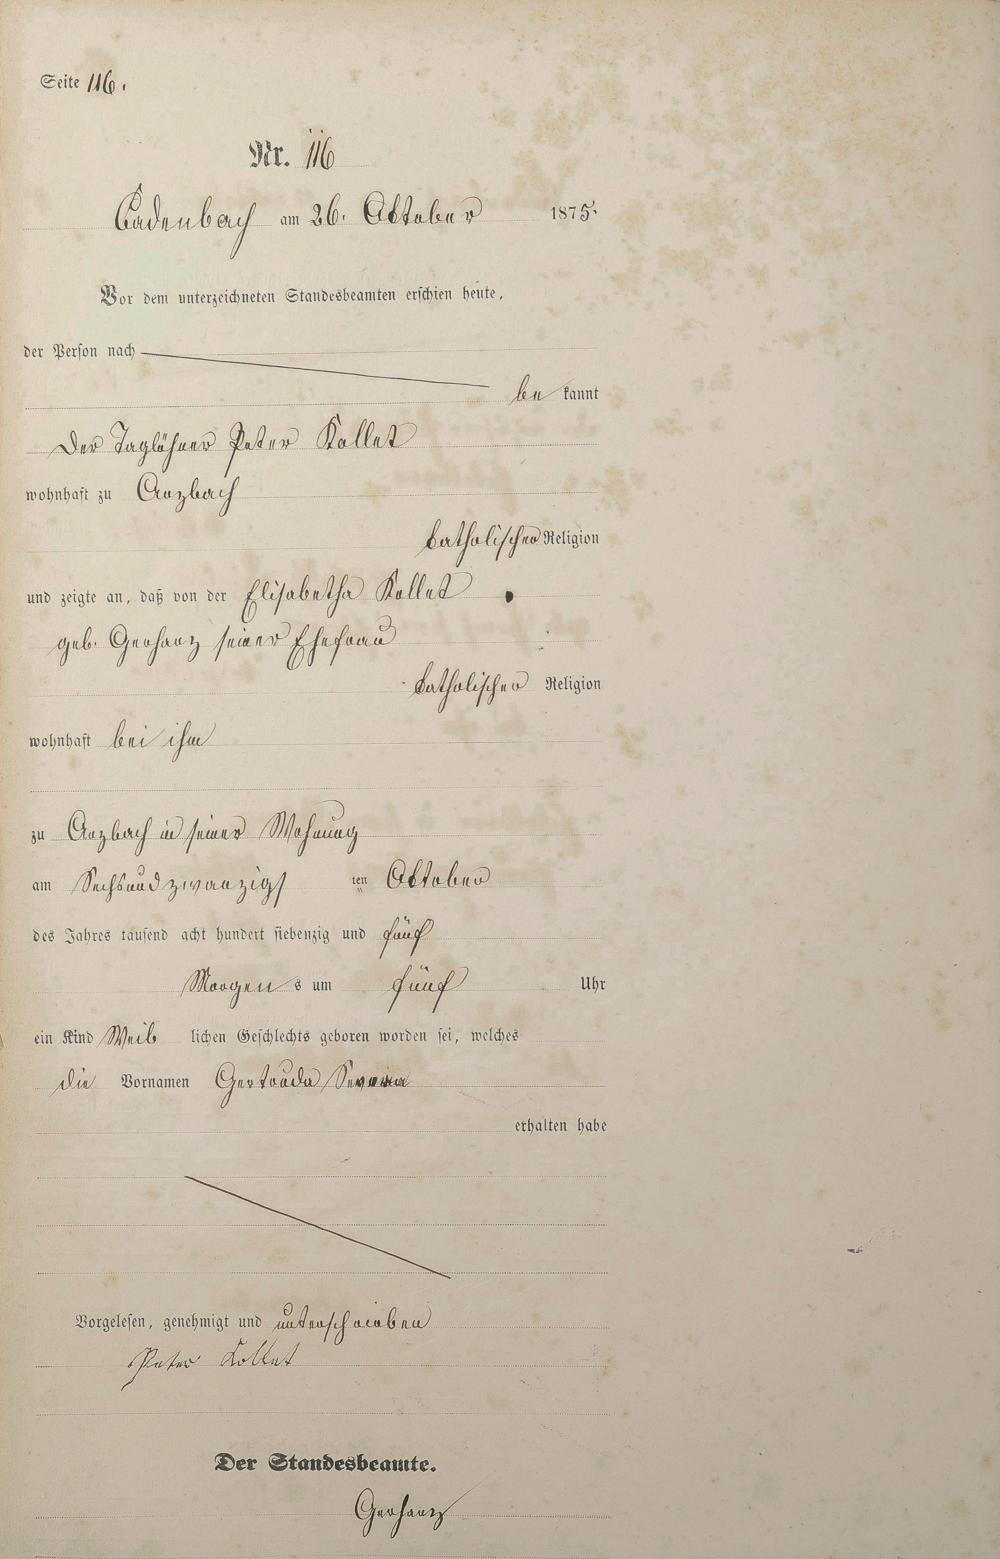 Seite 116.
Nr. 116
Cadenbach am 26. Oktober 1875.
Vor dem unterzeichneten Standesbeamten erschien heute,
der Person nach
be kannt
Der Taglöhner Peter Kollet
wohnhaft zu Arzbach
katholischer Religion
und zeigte an, daß von der Elisabetha Kollet
geb. Gerharz seiner Ehefrau
katholischer Religion
wohnhaft bei ihm
zu Arzbach in seiner Wohnung
am Sechsundzwanzigs ten Oktober
des Jahres tausend acht hundert siebenzig und fünf
Morgen s um fünf Uhr
ein Kind Weib lichen Geschlechts geboren worden sei, welches
die Vornamen Gertruda
erhalten habe
Vorgelesen, genehmigt und unterschrieben
Peter Kollet
Der Standesbeamte.
Gerharz